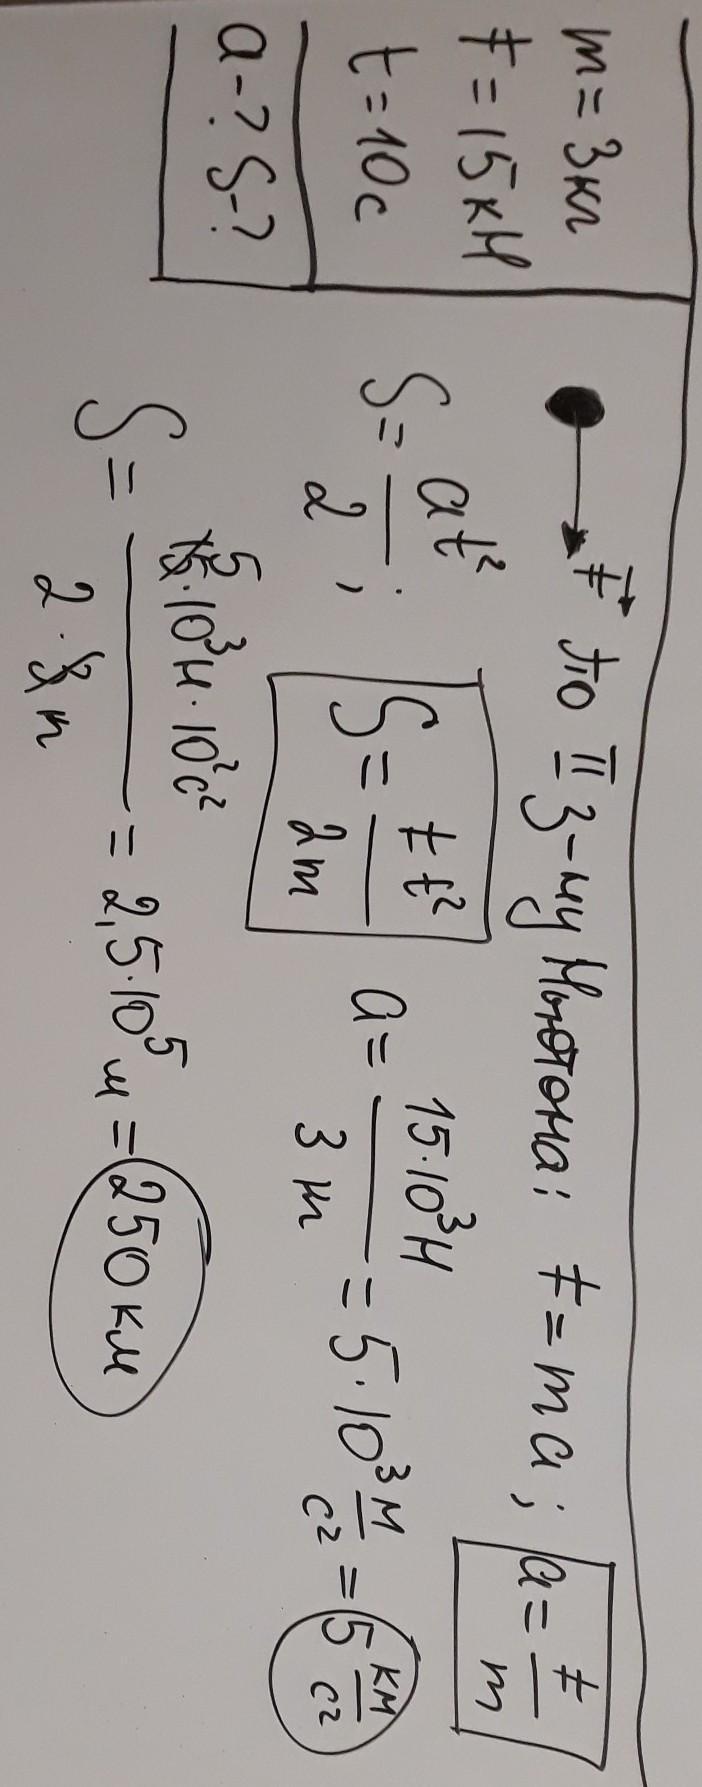 m = 3кг
F = 15кН
t = 10с
a-? S-?
F По II З-му Ньютона: F = ma; a = F/m
S = at²/2; S = Ft²/2m
a = 15·10³Н/3 кг = 5·10³ м/с² = 5 км/с²
S = 15 5·10³Н·10²с²/2·3 кг = 2,5·10⁵ м = 250 км